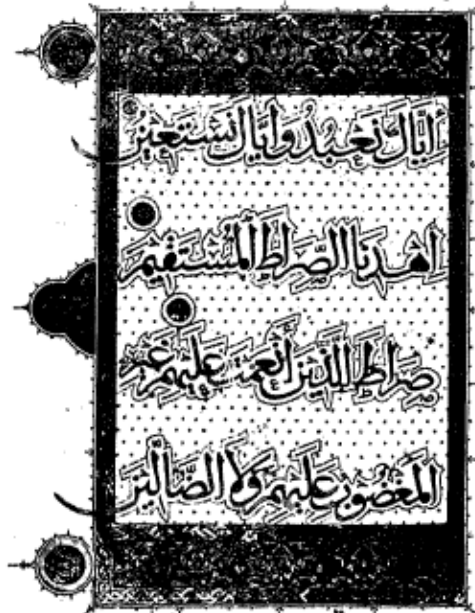 إياك نعبد وإياك نستعين
اهدنا الصراط المستقيم
صراط الذين أنعمت عليهم غير
المغضوب عليهم ولا الضالين